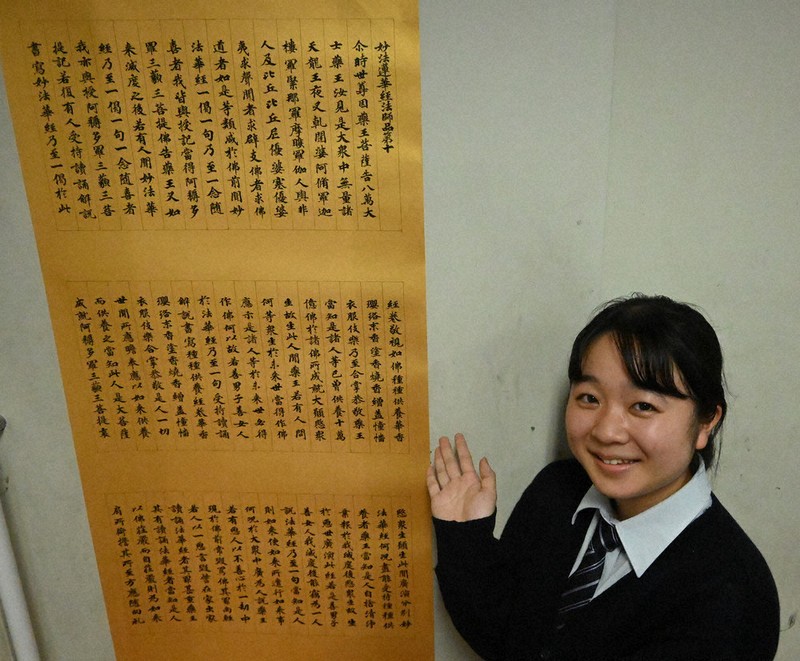 妙法蓮華経法師品第十
尒時世尊因藥王菩薩告八萬大
士藥王汝見是大衆中無量諸
天龍王夜叉乹闥婆阿脩羅迦
樓羅緊那羅摩睺羅伽人與非
人及比丘比丘尼優婆塞優婆
夷求聲聞者求辟支佛者求佛
道者如是等類咸於佛前聞妙
法華経一偈一句乃至一念随
喜者我皆與授記當得阿耨多
羅三藐三菩提佛告藥王又如
来滅度之後若有人聞妙法華
経乃至一偈一句一念随喜者
我亦與授阿耨多羅三藐三菩
提記若復有人受持讀誦解説
書寫妙法華経乃至一偈於此
経巻敬視如佛種種供養華香
瓔珞末香塗香焼香繒盖幢幡
衣服伎樂乃至合掌恭敬藥王
當知是諸人等已曽供養十萬
億佛於諸佛所成就大願愍衆
生故生此人間藥王若有人問
何等衆生於未来世當得作佛
應示是諸人等於未来世必得
作佛何以故若善男子善女人
於法華経乃至一句受持讀誦
解説書寫種種供養経巻華香
瓔珞末香塗香焼香繒盖幢幡
衣服伎樂合掌恭敬是人一切
世間所應瞻奉應以如来供養
而供養之當知此人是大菩薩
成就阿耨多羅三藐三菩提哀
愍衆生願生此間廣演分別妙
法華経何況盡能受持種種供
養者藥王當知是人自捨清浄
業報於我滅度後愍衆生故生
於悪世廣演此経若是善男子
善女人我滅度後能竊為一人
説法華経乃至一句當知是人
則如来使如来所遣行如来事
何況於大衆中廣為人説藥王
若有悪人以不善心於一劫中
現於佛前常毀罵佛其罪尚軽
若人以一悪言毀呰在家出家
讀誦法華経者其罪甚重藥王
其有讀誦法華経者當知是人
以佛荘嚴而自荘嚴則為如来
肩所荷擔其所至方應随向礼